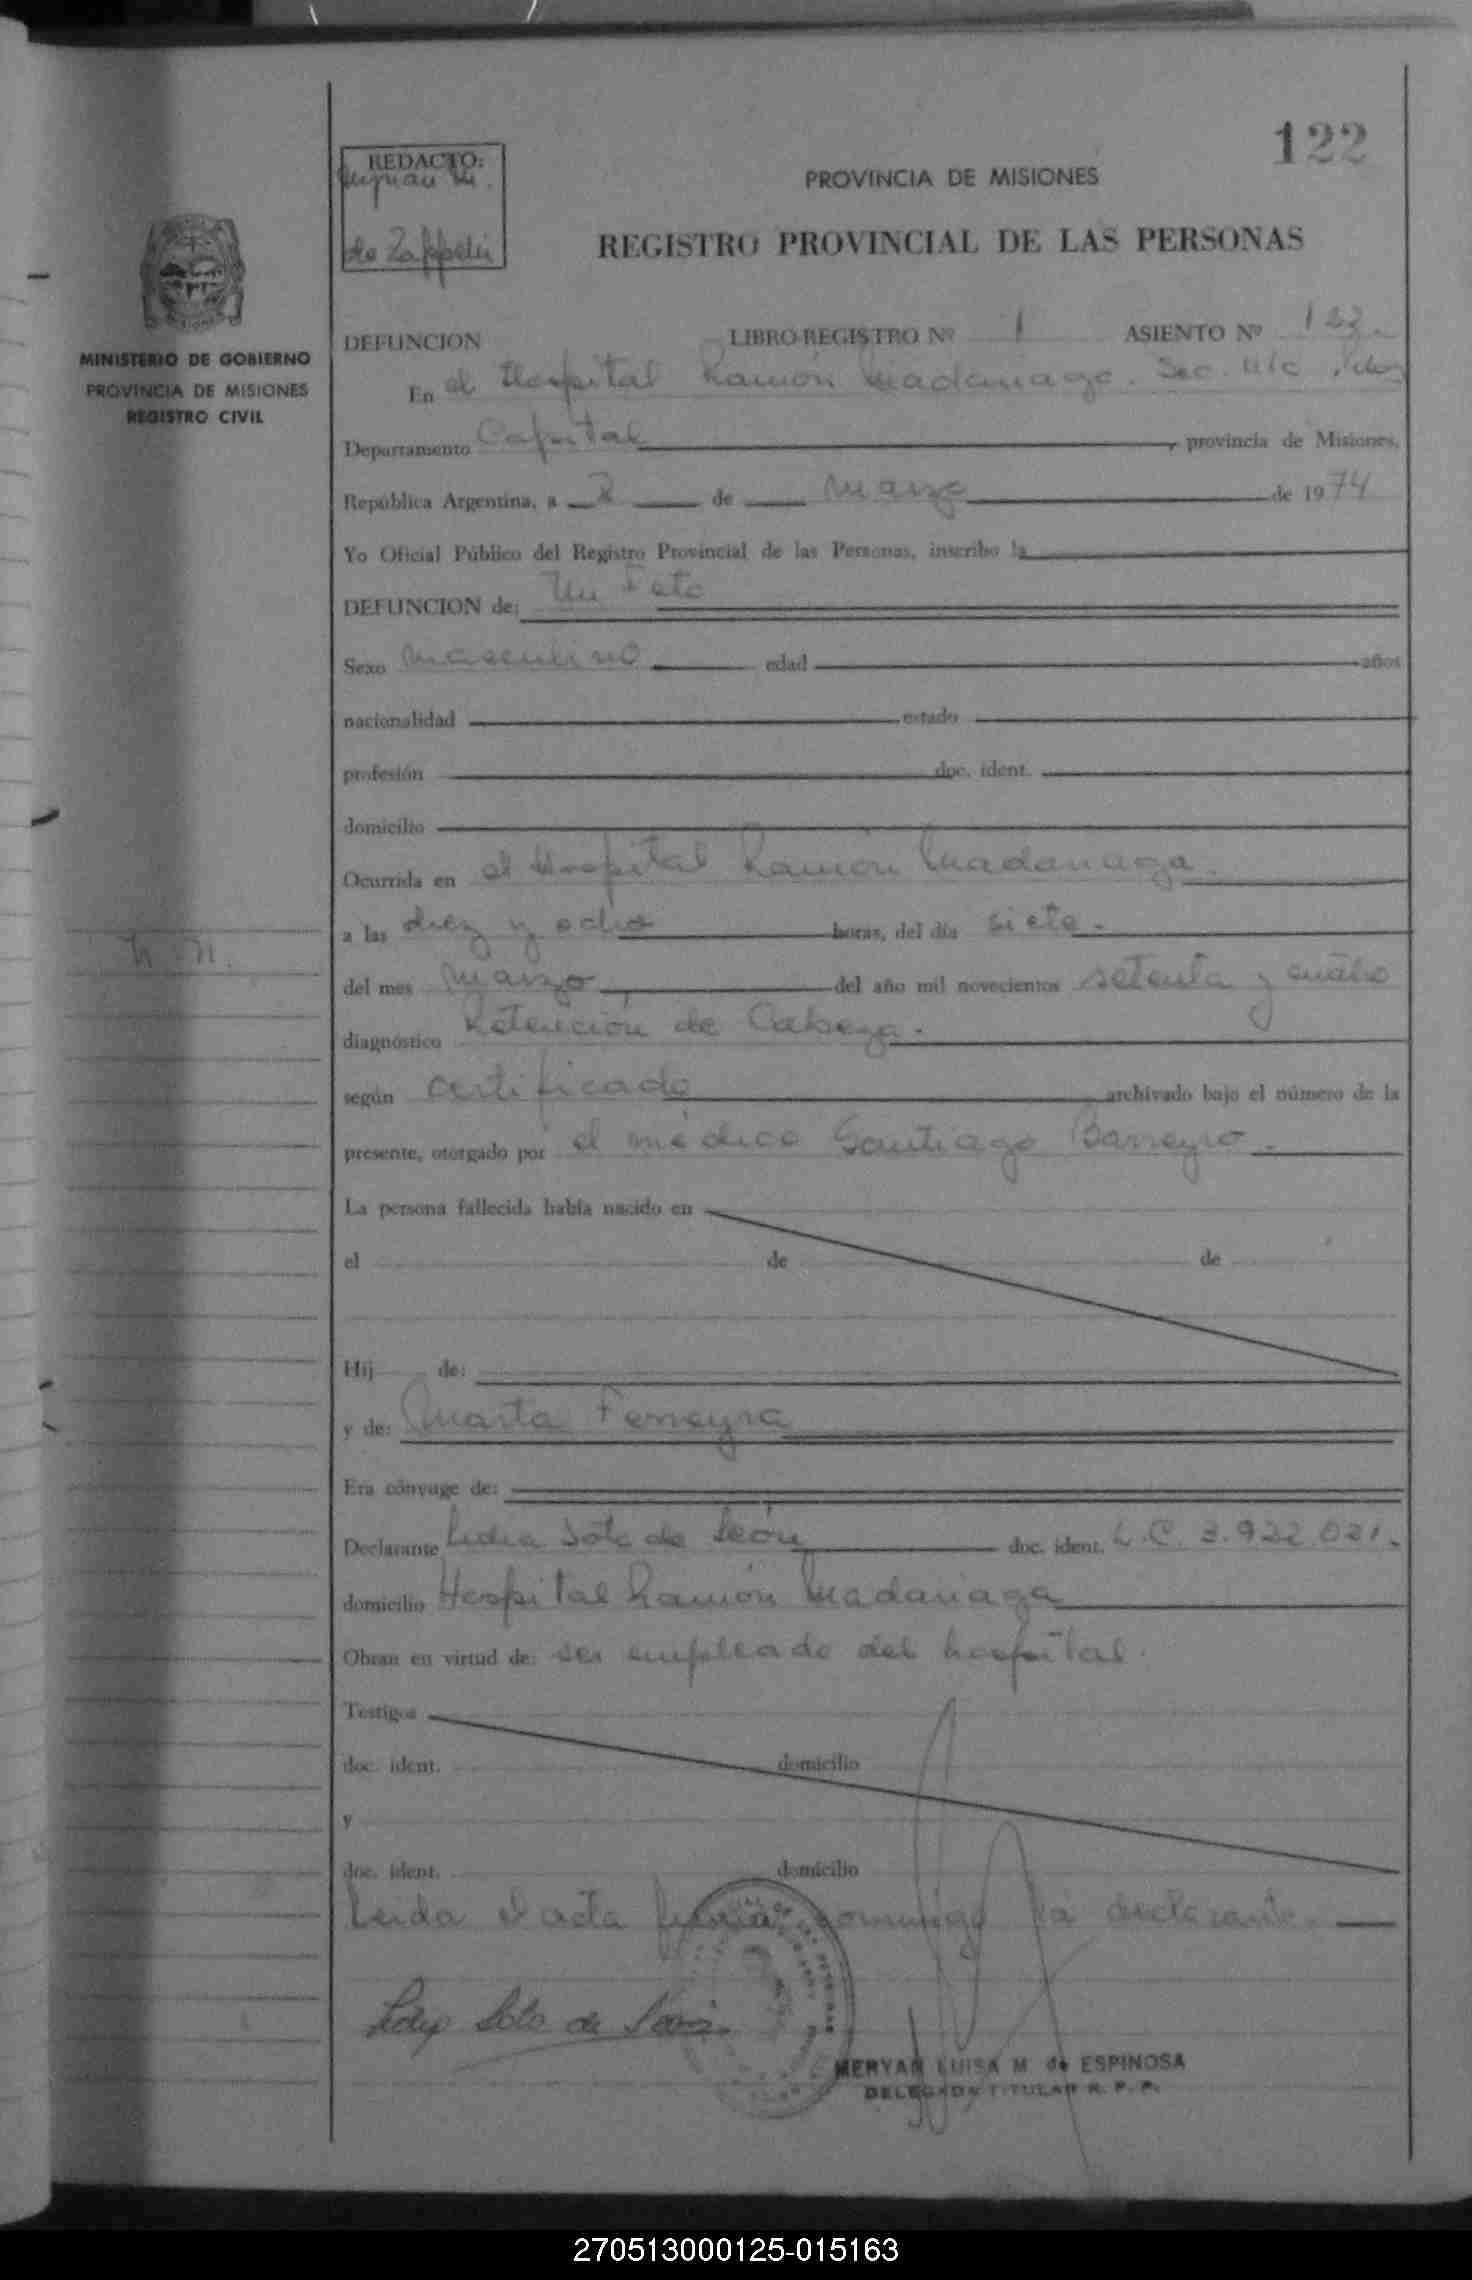 122
REDACTO:
de Zappelli
PROVINCIA DE MISIONES
REGISTRO PROVINCIAL DE LAS PERSONAS
MINISTERIO DE GOBIERNO
PROVINCIA DE MISIONES
REGISTRO CIVIL
DEFUNCION LIBRO REGISTRO Nº 1 ASIENTO Nº 122.
En el Hospital Ramón Madariaga. Sec. 4ta
Departamento Capital, provincia de Misiones,
República Argentina, a 8 de marzo de 1974
Yo Oficial Público del Registro Provincial de las Personas, inscribo la
DEFUNCION de: Un Feto
Sexo masculino edad años
nacionalidad estado
profesión doc. ident.
domicilio
Ocurrida en el Hospital Ramón Madariaga.
a las diez y ocho horas, del día siete.
N.N.
del mes marzo del año mil novecientos setenta y cuatro
diagnóstico Retención de Cabeza.
según certificado archivado bajo el número de la
presente, otorgado por el médico Santiago Barreyro.
La persona fallecida había nacido en
el de de
Hij de:
y de: Marta Ferreyra
Era cónyuge de:
Declarante Lidia Soto de León doc. ident. L.C. 3.922.021.
domicilio Hospital Ramón Madariaga
Obran en virtud de: ser empleado del hospital.
Testigos
doc. ident. domicilio
y
doc. ident. domicilio
Leida el acta firma conmigo la declarante.
Lidia Soto de León
MERYAN LUISA M. de ESPINOSA
DELEGADA TITULAR R. P. P.
270513000125-015163